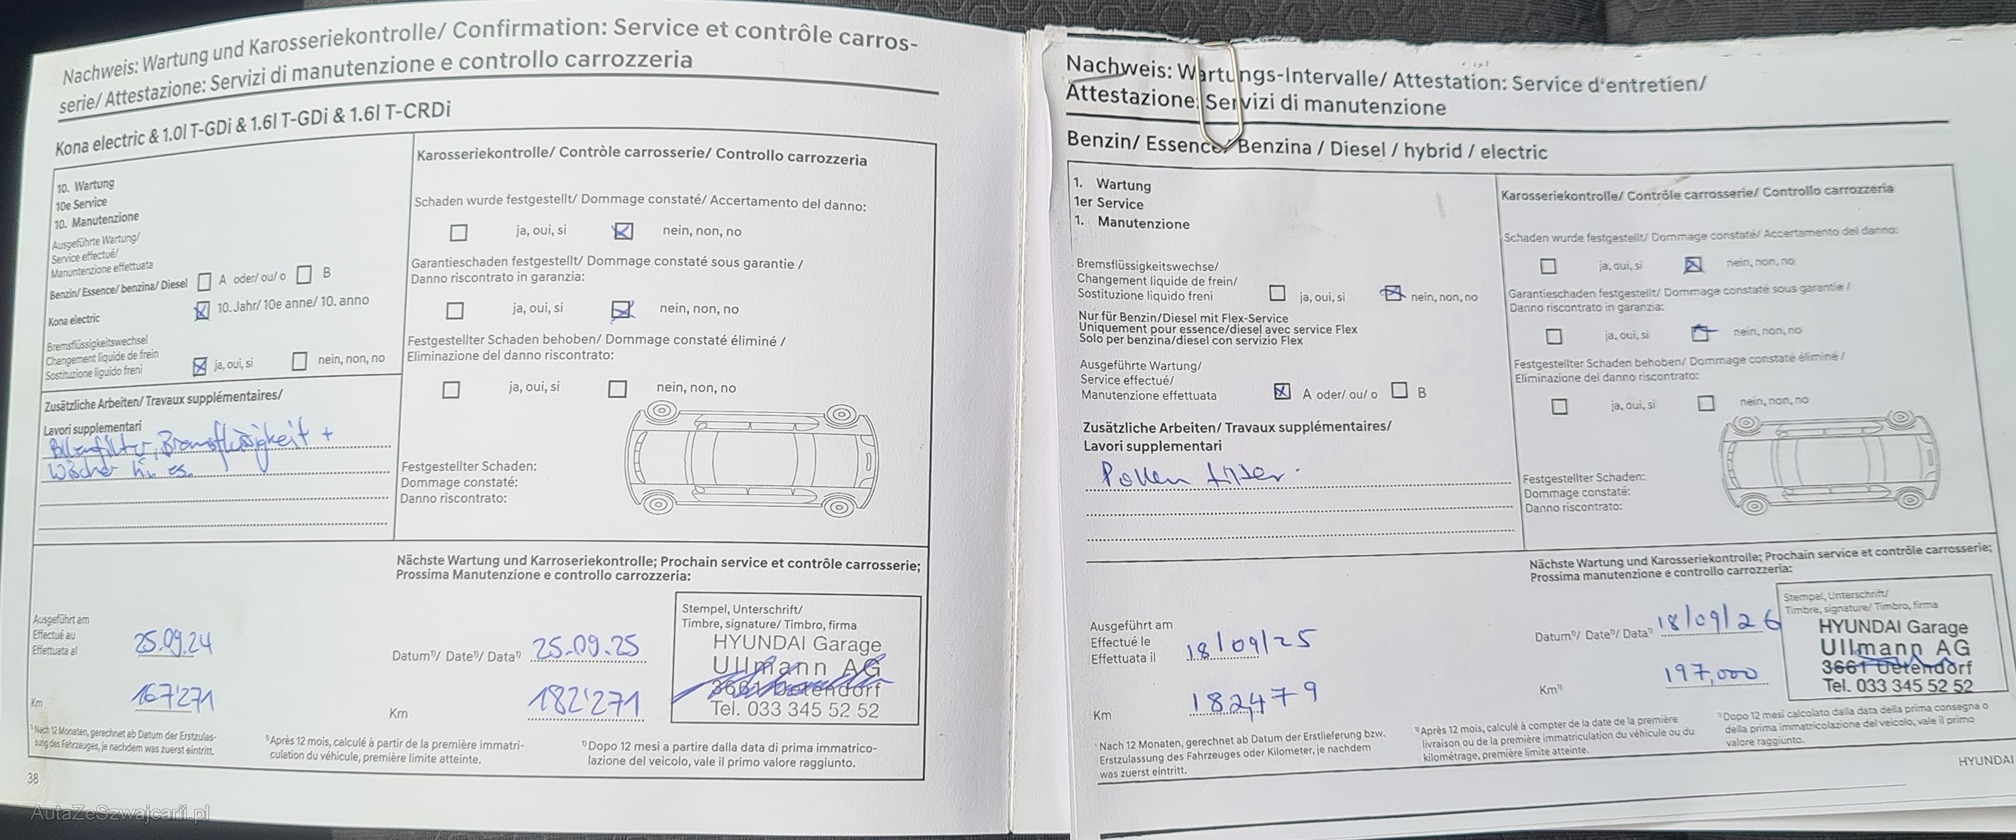 Nachweis: Wartung und Karosseriekontrolle/ Confirmation: Service et contrôle carros-
serie/ Attestazione: Servizi di manutenzione e controllo carrozzeria
Kona electric & 1.0l T-GDi & 1.6l T-GDi & 1.6l T-CRDi
10. Wartung
10e Service
10. Manutenzione
Ausgeführte Wartung/
Service effectué/
Manuntenzione effettuata
Benzin/ Essence/ benzina/ Diesel A oder/ ou/ o B
Kona electric 10. Jahr/ 10e anne/ 10. anno
Bremsflüssigkeitswechsel
Changement liquide de frein
Sostituzione liguido freni ja, oui, si nein, non, no
Zusätzliche Arbeiten/ Travaux supplémentaires/
Lavori supplementari
Pollenfilter, Bremsflüssigkeit +
Karosseriekontrolle/ Contrôle carrosserie/ Controllo carrozzeria
Schaden wurde festgestellt/ Dommage constaté/ Accertamento del danno:
ja, oui, si nein, non, no
Garantieschaden festgestellt/ Dommage constaté sous garantie /
Danno riscontrato in garanzia:
ja, oui, si nein, non, no
Festgestellter Schaden behoben/ Dommage constaté éliminé /
Eliminazione del danno riscontrato:
ja, oui, si nein, non, no
Festgestellter Schaden:
Dommage constaté:
Danno riscontrato:
Nächste Wartung und Karroseriekontrolle; Prochain service et contrôle carrosserie;
Prossima Manutenzione e controllo carrozzeria:
Ausgeführt am
Effectué au
Effettuata al 25.09.24
Km 167'271
Datum¹⁾/ Date¹⁾/ Data¹⁾ 25.09.25
Km 182'271
Stempel, Unterschrift/
Timbre, signature/ Timbro, firma
HYUNDAI Garage
Ullmann AG
3661 Uetendorf
Tel. 033 345 52 52
¹⁾Nach 12 Monaten, gerechnet ab Datum der Erstzulas-
sung des Fahrzeuges, je nachdem was zuerst eintritt.
¹⁾Après 12 mois, calculé à partir de la première immatri-
culation du véhicule, première limite atteinte.
¹⁾Dopo 12 mesi a partire dalla data di prima immatrico-
lazione del veicolo, vale il primo valore raggiunto.
38
AutaZeSzwajcarii.pl
Nachweis: Wartungs-Intervalle/ Attestation: Service d'entretien/
Attestazione: Servizi di manutenzione
Benzin/ Essence/ Benzina / Diesel / hybrid / electric
1. Wartung
1er Service
1. Manutenzione
Bremsflüssigkeitswechse/
Changement liquide de frein/
Sostituzione liquido freni ja, oui, si nein, non, no
Nur für Benzin/Diesel mit Flex-Service
Uniquement pour essence/diesel avec service Flex
Solo per benzina/diesel con servizio Flex
Ausgeführte Wartung/
Service effectué/
Manutenzione effettuata A oder/ ou/ o B
Zusätzliche Arbeiten/ Travaux supplémentaires/
Lavori supplementari
Pollen filter
Karosseriekontrolle/ Contrôle carrosserie/ Controllo carrozzeria
Schaden wurde festgestellt/ Dommage constaté/ Accertamento del danno:
ja, oui, si nein, non, no
Garantieschaden festgestellt/ Dommage constaté sous garantie /
Danno riscontrato in garanzia:
ja, oui, si nein, non, no
Festgestellter Schaden behoben/ Dommage constaté éliminé /
Eliminazione del danno riscontrato:
ja, oui, si nein, non, no
Festgestellter Schaden:
Dommage constaté:
Danno riscontrato:
Nächste Wartung und Karosseriekontrolle; Prochain service et contrôle carrosserie;
Prossima manutenzione e controllo carrozzeria:
Ausgeführt am
Effectué le
Effettuata il 18/09/25
Km 182479
Datum¹⁾/ Date¹⁾/ Data¹⁾ 18/09/26
Km¹⁾ 197,000
Stempel, Unterschrift/
Timbre, signature/ Timbro, firma
HYUNDAI Garage
Ullmann AG
3661 Uetendorf
Tel. 033 345 52 52
¹Nach 12 Monaten, gerechnet ab Datum der Erstlieferung bzw.
Erstzulassung des Fahrzeuges oder Kilometer, je nachdem
was zuerst eintritt.
¹⁾Après 12 mois, calculé à compter de la date de la première
livraison ou de la première immatriculation du véhicule ou du
kilométrage, première limite atteinte.
¹⁾Dopo 12 mesi calcolato dalla data della prima consegna o
della prima immatricolazione del veicolo, vale il primo
valore raggiunto.
HYUNDAI